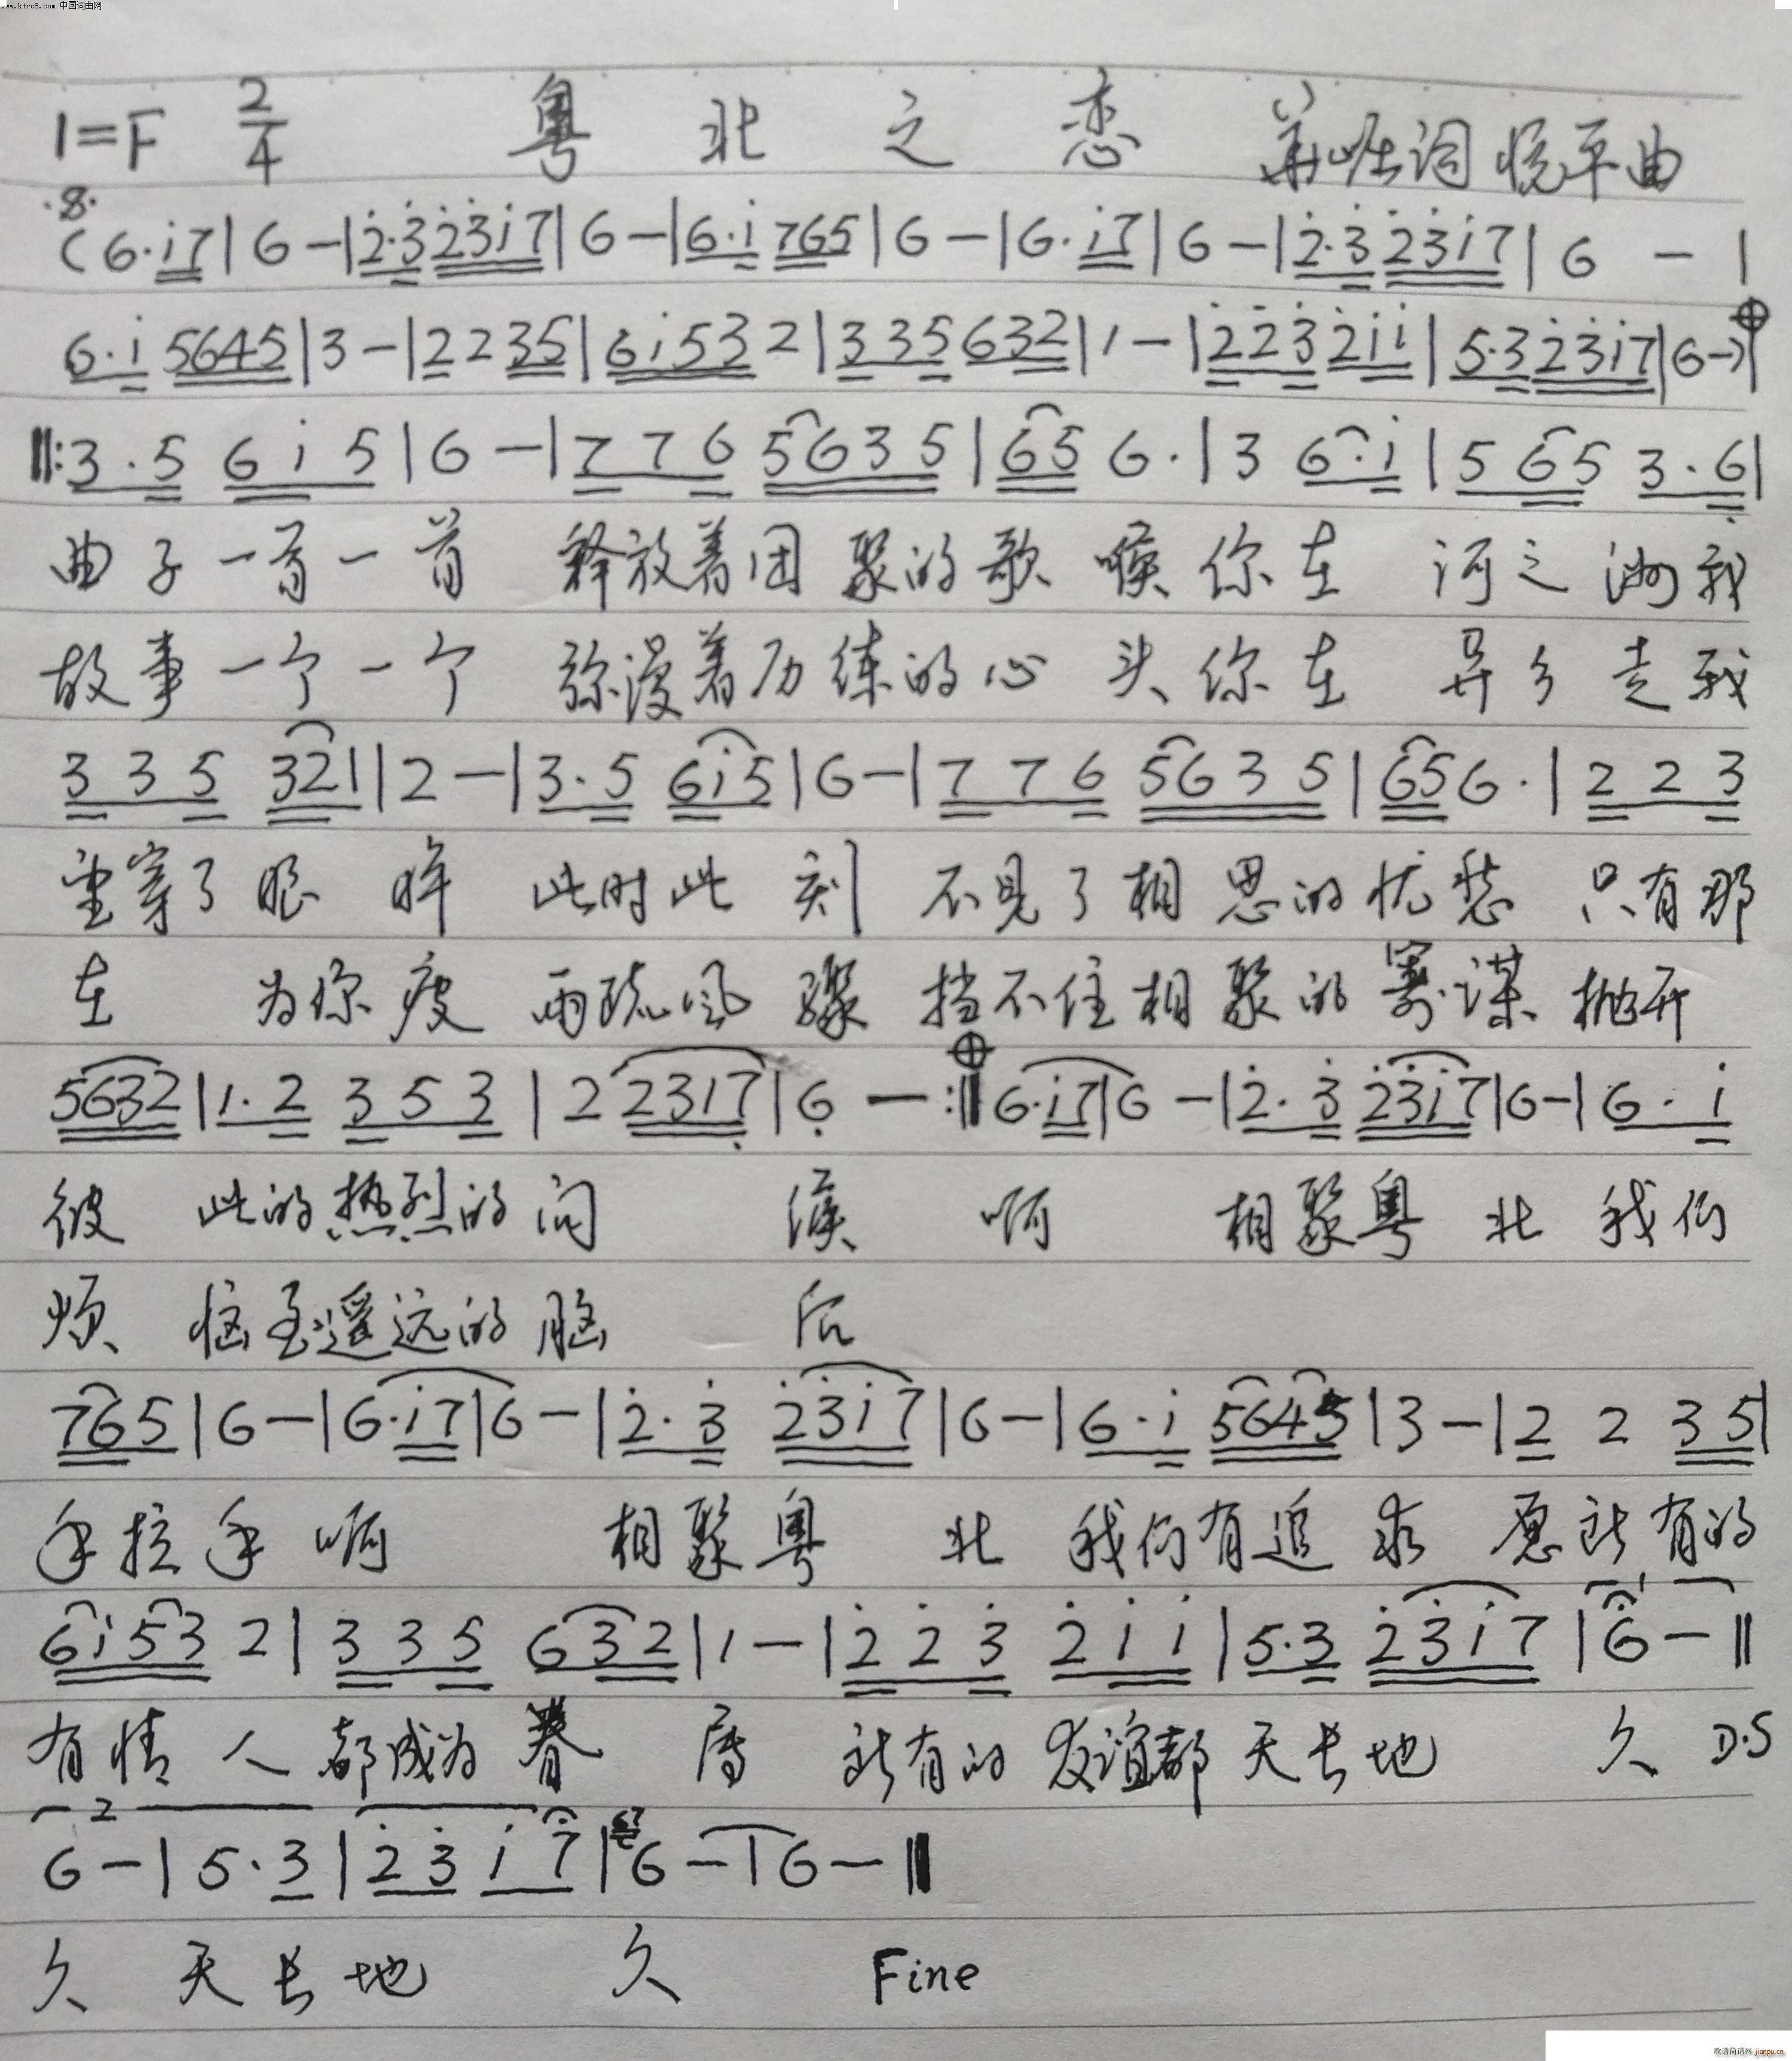 www.ktvc8.com 中国词曲网
1=F 2/4 粤北之恋 词 悦平曲
(6·i7|6-|2·3 2317|6-|6·i 765|6-|6·i7|6-|2·3 2317|6-|
6·i 5645|3-|2 2 35|6i53 2|335 632|1-|223 2ii|5·3 23i7|6-)|
‖:3·5 6i5|6-|776 5635|65 6·|3 6·i|565 3·6|
曲子一首一首 释放着团聚的歌喉你在 河之洲我
故事一个一个 弥漫着历练的心头你在 异乡走我
335 321|2-|3·5 6i5|6-|776 5635|65 6·|223
望穿了眼眸 此时此刻 不见了相思的忧愁 只有那
在 为你疲 雨疏风骤 挡不住相聚的筹谋 抛开
5632|1·2 353|2 2317|6-:‖6·i7|6-|2·3 23i7|6-|6·i
彼此的热烈的问候 啊 相聚粤北 我们
烦恼至遥远的脑后
765|6-|6·i7|6-|2·3 23i7|6-|6·i 5645|3-|2 2 35|
手拉手 啊 相聚粤北 我们有追求 愿所有的
6i53 2|335 632|1-|223 2ii|5·3 23i7|6-‖
有情人都成为眷属 所有的友谊都天长地久 D.S
2
6-|5·3|23 i7|67 6-|6-‖
久 天长地久 Fine
歌谱简谱网 jianpu.cn